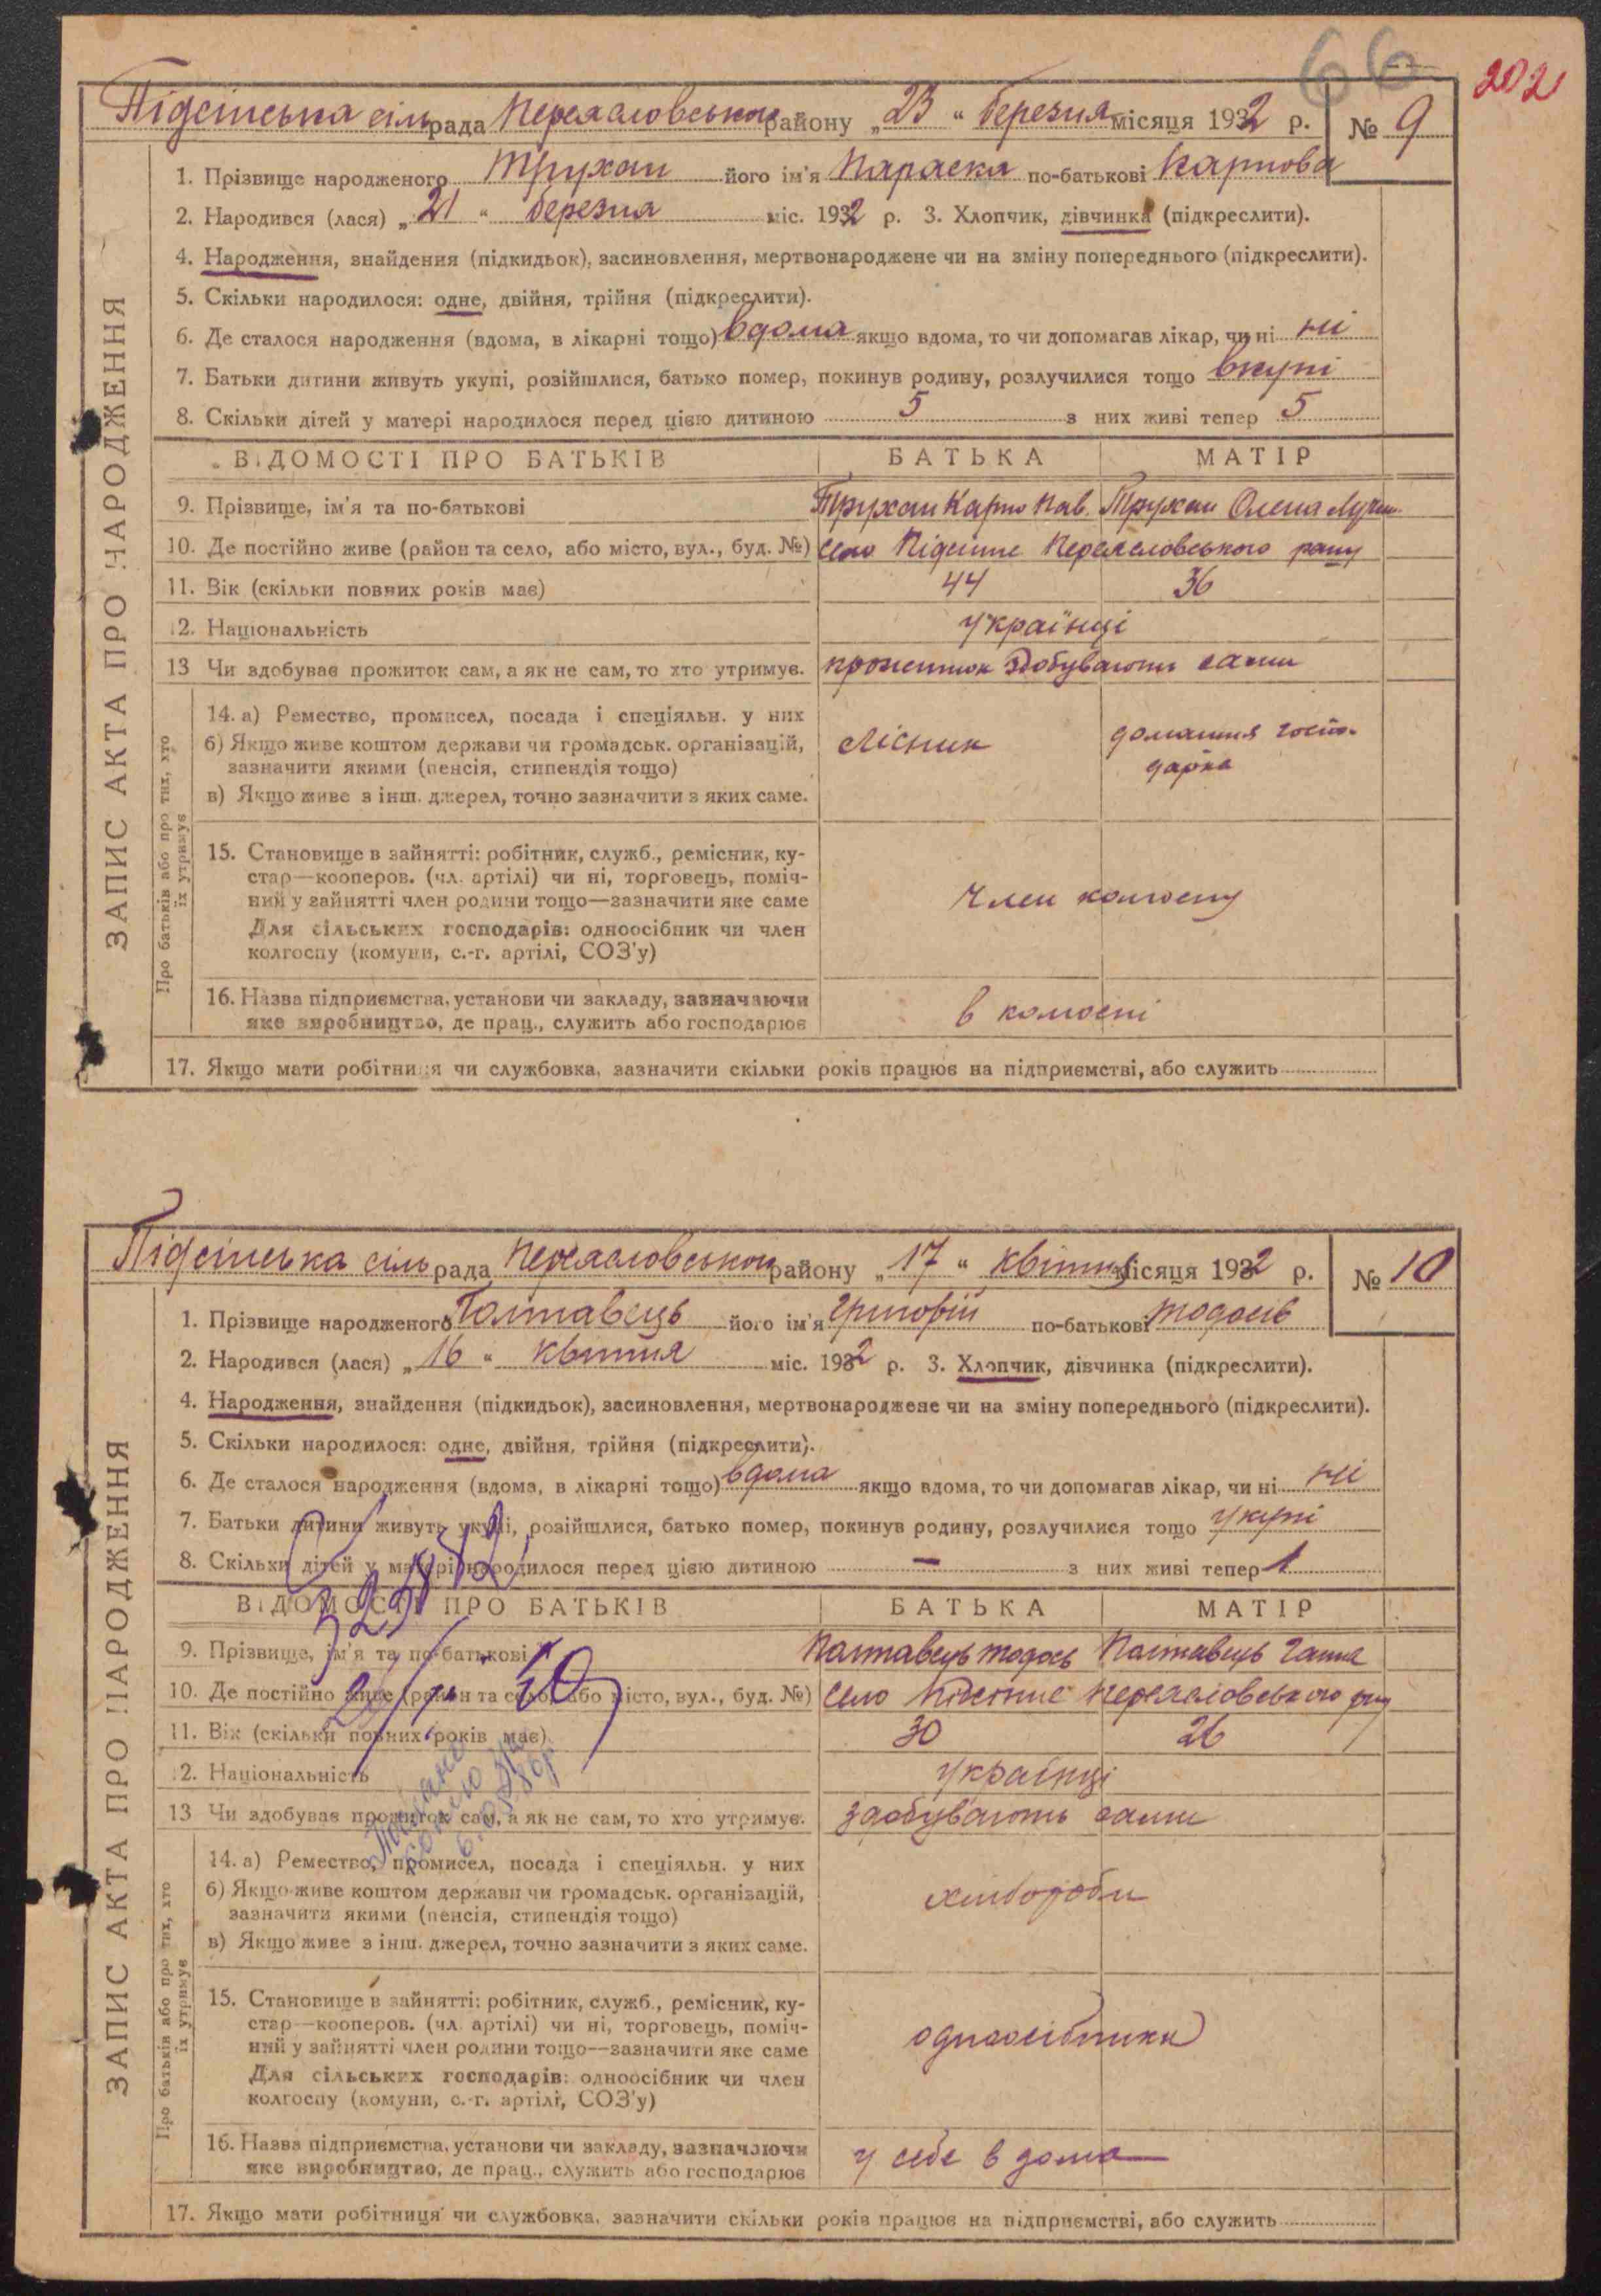 66
202
Підсінська сільрада Переясловського району „23“ березня місяця 1932 р. № 9
1. Прізвище народженого Трухан його ім'я Параска по-батькові Карпова
2. Народився (лася) „21“ березня міс. 1932 р. 3. Хлопчик, дівчинка (підкреслити).
4. Народження, знайдения (підкидьок), засиновлення, мертвонароджене чи на зміну попереднього (підкреслити).
5. Скільки народилося: одне, двійня, трійня (підкреслити).
6. Де сталося народження (вдома, в лікарні тощо) вдома якщо вдома, то чи допомагав лікар, чи ні ні
7. Батьки дитини живуть укупі, розійшлися, батько помер, покинув родину, розлучилися тощо вкупі
8. Скільки дітей у матері народилося перед цією дитиною 5 з них живі тепер 5
ВІДОМОСТІ ПРО БАТЬКІВ БАТЬКА МАТІР
9. Прізвище, ім'я та по-батькові Трухан Карпо Пав. Трухан Олена
10. Де постійно живе (район та село, або місто, вул., буд. №) село Підсінне Переясловського рану
11. Вік (скільки повних років має) 44 36
12. Національність Українці
13 Чи здобуває прожиток сам, а як не сам, то хто утримує. прожиток здобувають сами
14. а) Ремество, промисел, посада і спеціяльн. у них
б) Якщо живе коштом держави чи громадськ. організацій,
зазначити якими (пенсія, стипендія тощо)
в) Якщо живе з інш. джерел, точно зазначити з яких саме.
лісник
домашня госпо-
дарка
15. Становище в зайнятті: робітник, служб., ремісник, ку-
стар—кооперов. (чл. артілі) чи ні, торговець, поміч-
ний у зайнятті член родини тощо—зазначити яке саме
Для сільських господарів: одноосібник чи член
колгоспу (комуни, с.-г. артілі, СОЗ'у)
Член колгоспу
16. Назва підприємства, установи чи закладу, зазначаючи
яке виробництво, де прац., служить або господарює
в колгоспі
17. Якщо мати робітниця чи службовка, зазначити скільки років працює на підприємстві, або служить
ЗАПИС АКТА ПРО НАРОДЖЕННЯ
Про батьків або про тих, хто
їх утримує
Підсінська сільрада Переясловського району „17“ квітня місяця 1932 р. № 10
1. Прізвище народженого Полтавець його ім'я Григорій по-батькові Тодосів
2. Народився (лася) „16“ квітня міс. 1932 р. 3. Хлопчик, дівчинка (підкреслити).
4. Народження, знайдення (підкидьок), засиновлення, мертвонароджене чи на зміну попереднього (підкреслити).
5. Скільки народилося: одне, двійня, трійня (підкреслити).
6. Де сталося народження (вдома, в лікарні тощо) вдома якщо вдома, то чи допомагав лікар, чи ні ні
7. Батьки дитини живуть укупі, розійшлися, батько помер, покинув родину, розлучилися тощо укупі
8. Скільки дітей у матері народилося перед цією дитиною — з них живі тепер 1
ВІДОМОСТІ ПРО БАТЬКІВ БАТЬКА МАТІР
9. Прізвище, ім'я та по-батькові Полтавець Тодось Полтавець Ганна
10. Де постійно живе (район та село, або місто, вул., буд. №) село Підсінне Переясловського
11. Вік (скільки повних років має) 30 26
12. Національність Українці
13 Чи здобуває прожиток сам, а як не сам, то хто утримує. здобувають сами
14. а) Ремество, промисел, посада і спеціяльн. у них
б) Якщо живе коштом держави чи громадськ. організацій,
зазначити якими (пенсія, стипендія тощо)
в) Якщо живе з інш. джерел, точно зазначити з яких саме.
хлібороби
15. Становище в зайнятті: робітник, служб., ремісник, ку-
стар—кооперов. (чл. артілі) чи ні, торговець, поміч-
ний у зайнятті член родини тощо—зазначити яке саме
Для сільських господарів: одноосібник чи член
колгоспу (комуни, с.-г. артілі, СОЗ'у)
одноосібники
16. Назва підприємства, установи чи закладу, зазначаючи
яке виробництво, де прац., служить або господарює
у себе в дома
17. Якщо мати робітниця чи службовка, зазначити скільки років працює на підприємстві, або служить
ЗАПИС АКТА ПРО НАРОДЖЕННЯ
Про батьків або про тих, хто
їх утримує